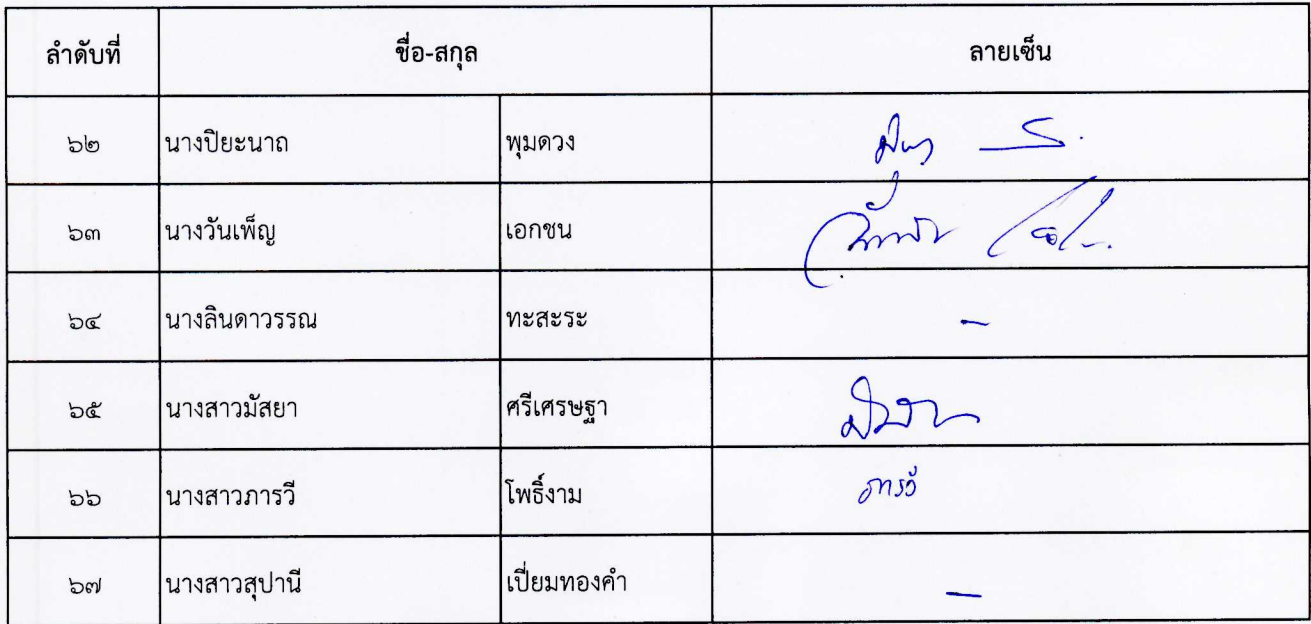 ลำดับที่ ชื่อ-สกุล ลายเซ็น
๖๒ นางปิยะนาถ พุมดวง
๖๓ นางวันเพ็ญ เอกชน
๖๔ นางลินดาวรรณ ทะสะระ -
๖๕ นางสาวมัสยา ศรีเศรษฐา
๖๖ นางสาวภารวี โพธิ์งาม ภารวี
๖๗ นางสาวสุปานี เปี่ยมทองคำ -